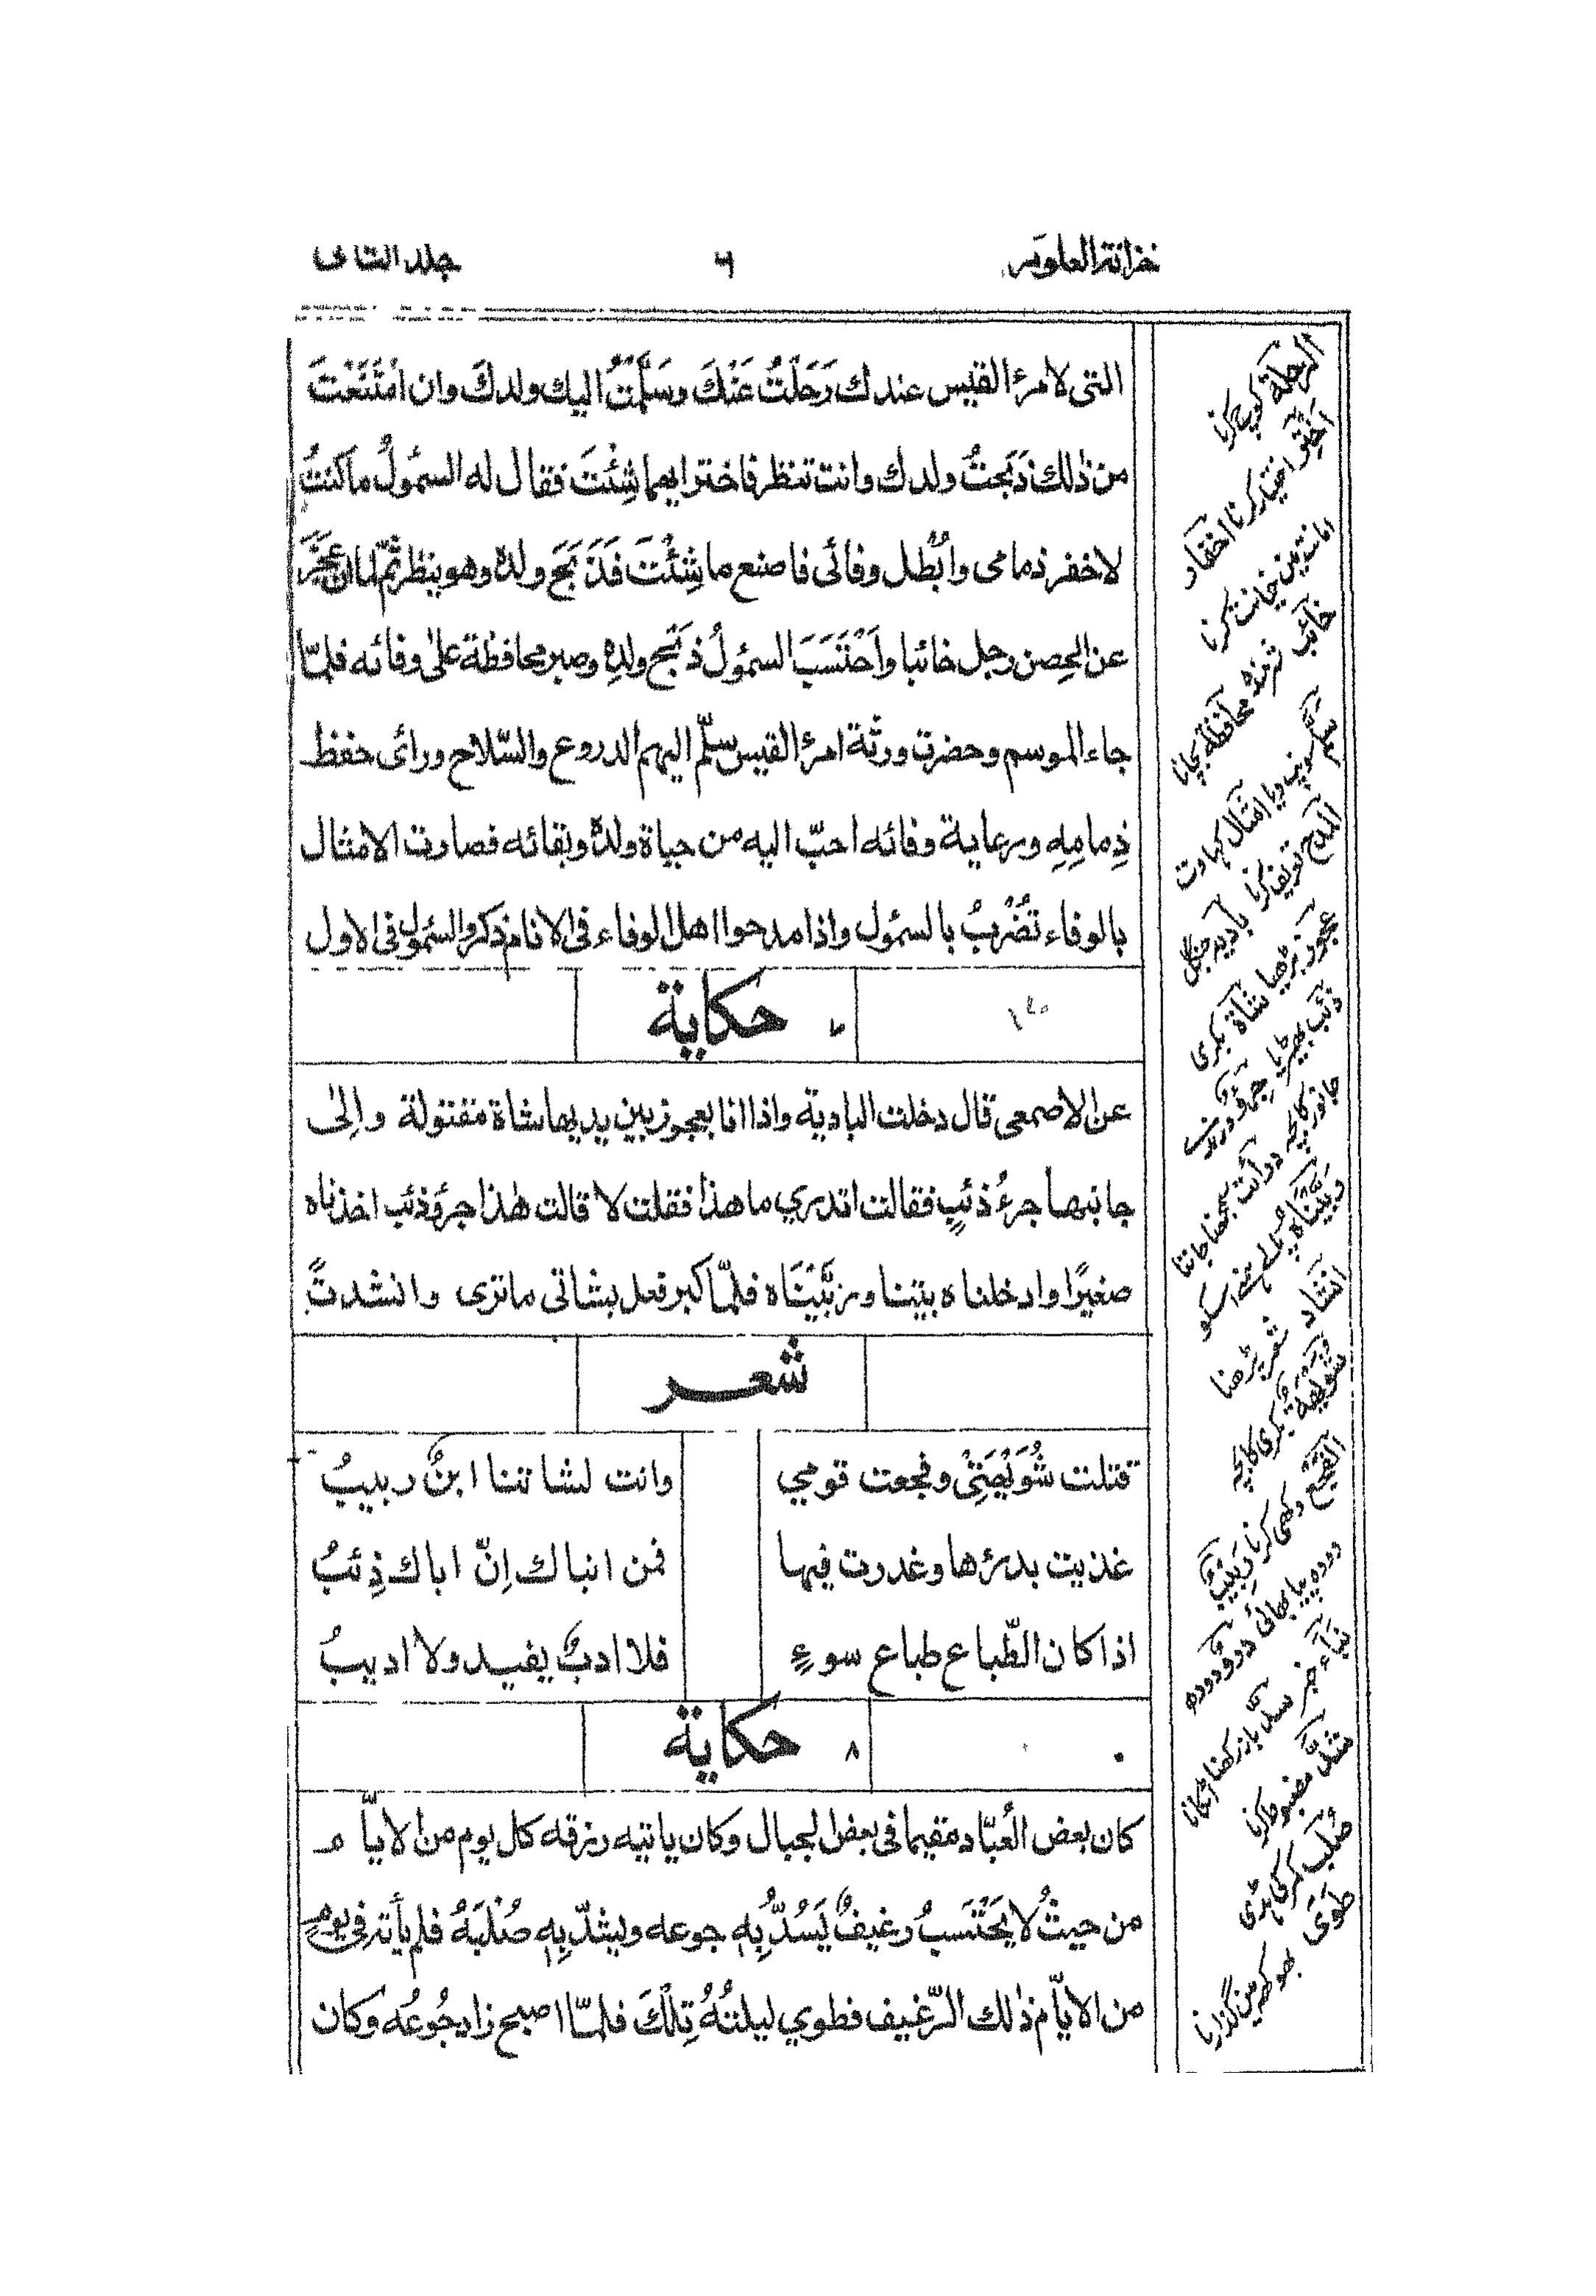 خزانة العلوم
٦
جلد الثانی
التی لامرئ القیس عندك رَحَلْتُ عَنْكَ وسَلَّمْتُ الیك ولدكَ وان امْتَنَعْتَ
من ذٰلك ذَبَحتُ ولدك وانت تنظر فاختر ایهما شِئْتَ فقال له السمُولُ ما كنتُ
لاخفر ذمامی وابُطل وفائی فاصنع ما شِئْتَ فَذَبَحَ ولدهٗ وهو ینظر ثمّ لمّا ان عجَزَ
عن الحِصن رجل خائبا واَحْتَسَبَ السمؤلُ ذَبْحَ ولدِهٖ وصبر محافظة علیٰ وفائه فلمّا
جاء الموسم وحضرت ورثة امرئ القیس سلّم الیهم الدروع والسّلاح ورأی حفظ
ذِمامِهِ ورعایة وفائه احبّ الیه من حیاة ولدهٖ وبقائه فصارت الامثال
بالوفاء تُضْرَبُ بالسمُول واذا مدحوا اهل الوفاء فی الانام ذكر والسمُول فی الاول
حكایة
٧
١٤٠
عن الاصمعی قال دخلت البادیة واذا انا بعجوز بین یدیها شاة مقتولة والِیٰ
جانبها جرءُ ذئبٍ فقالت اتدري ما هذا فقلت لا قالت هٰذا جرؤ ذئب اخذناه
صغیرًا وادخلناه بیتنا وربَّیْنَاه فلمّا كبر فعل بشاتی ما تری وانشدتْ
شعر
قتلت شُوَیْهَتِیْ وفجعت قومي
وانت لشاتنا ابنٌ ربیبُ
غذیت بدرّها وغدرت فیها
فمن انباك اِنّ اباك ذِئبُ
اذا كان الطّباع طباع سوءٍ
فلا ادبٌ یفید ولا ادیبُ
حكایة
٨
كان بعض العُبّاد مقیما فی بعض الجبال وكان یاتیه رزقه كل یوم من الایّام
من حیثُ لا یَحْتَسِبُ رغیفٌ یَسُدُّ بِهٖ جوعه ویشدّ بِهٖ صُلْبَهُ فلم یأته فی یومٍ
من الایّام ذٰلك الرّغیف فطوي لیلتهُ تِلْكَ فلمّا اصبح زاد جُوعُه وكان
الرحلة كوچ كرنا
اختر اختیار كرنا اخفار
امانت مین خیانت كرنا
خائب شرمنده محافظة بچانا
سلّم سونپ دیا امثال كہاوت
المدح تعریف كرنا بادیه جنگل
عجوز بڑھیا شاة بكری
ذئب بھیڑیا جرو درنده
جانور كا بچه درأت سمجھنا جاننا
ربیناه پالا ہمنے اسكو
انشاد شعر پڑھنا
شویهة بكری كا بچه
الفجع دكھی كرنا ربیب
دوده پیا بھائی در دوده
نباء خبر سد باز ركھنا
شد مضبوط كرنا
صُلب كمر كی ہڈی
طوی بھوكھ مین گذارنا